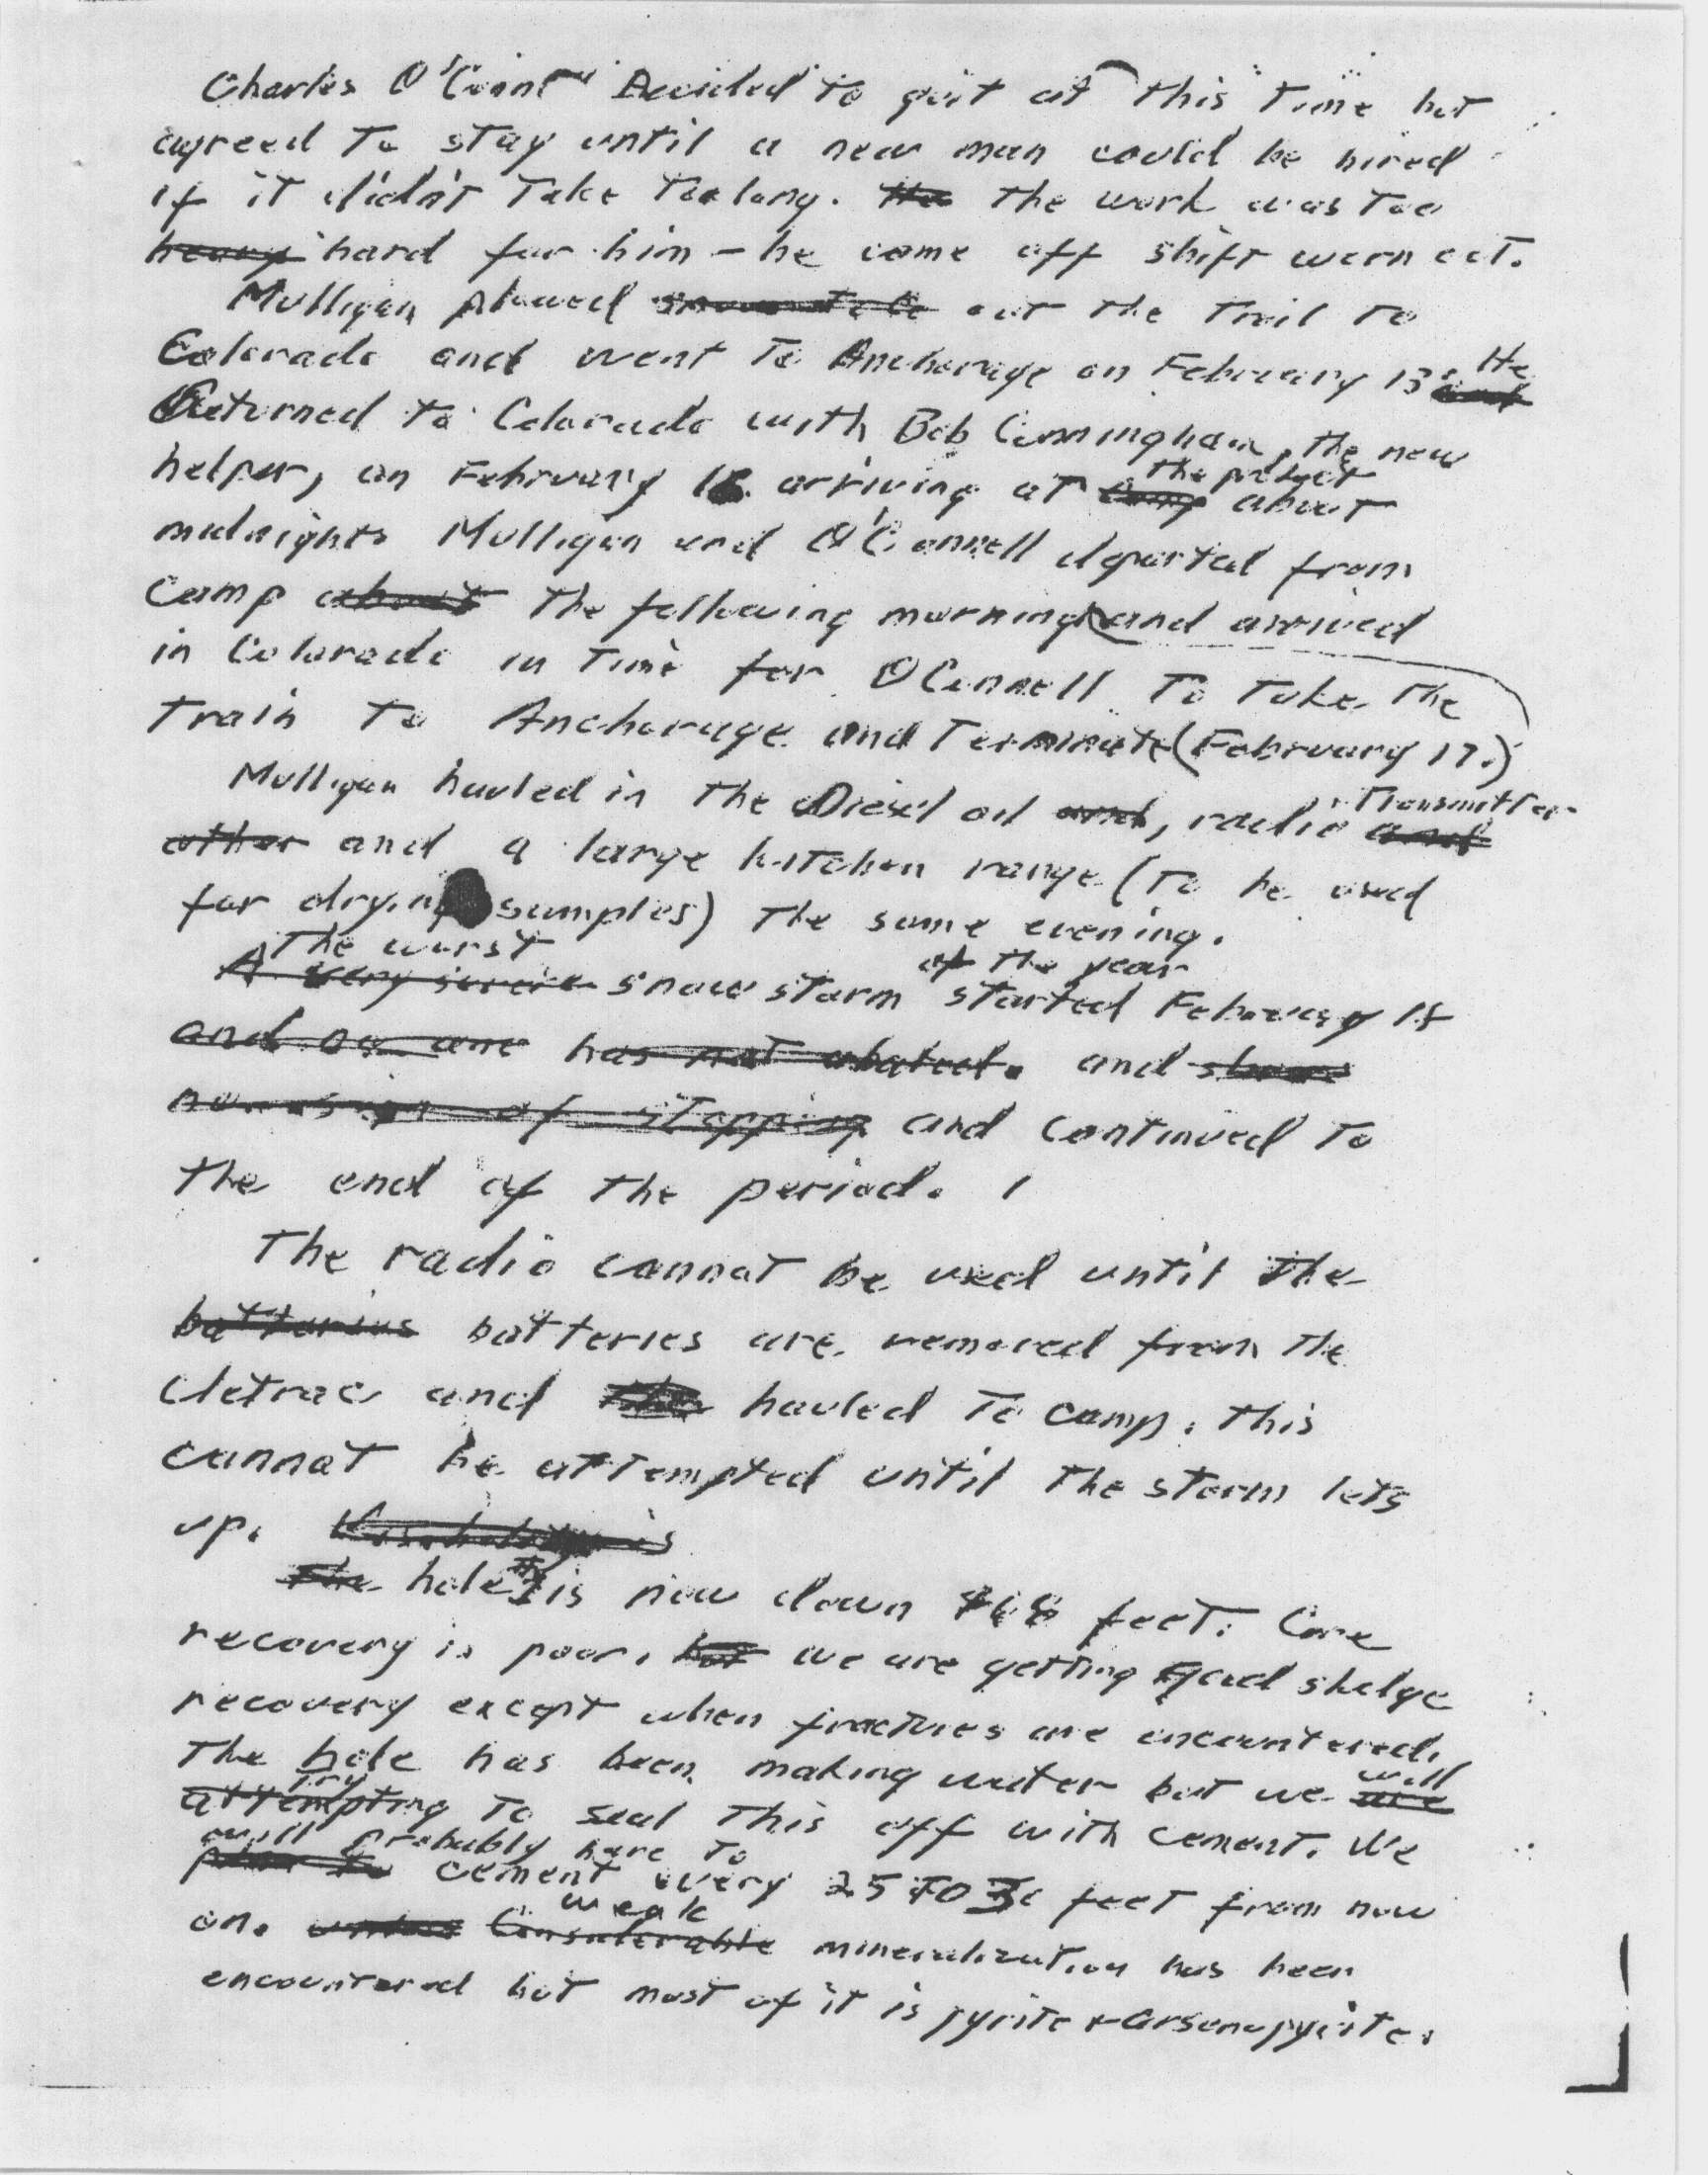 Charles O'Connell Decided to quit at this time but
agreed to stay until a new man could be hired
if it didn't take too long. the the work was too
heavy hard for him - he come off shift worn out.
Mulligan plowed out the trail to
Colorado and went to Anchorage on February 13. He
Returned to Colorado with Bob Cunningham, the new
helper, on February 16 arriving at camp the project about
midnight. Mulligan and O'Connell departed from
camp about the following morning and arrived
in Colorado in time for O'Connell to take the
train to Anchorage and Terminate (February 17.)
Mulligan hauled in the Diesel oil and, radio transmitter and
other and a large kitchen range (to be used
for drying samples) the same evening.
The worst
A very severe snow storm of the year started February 18
and has not abated. and shows
no sign of stopping and continued to
the end of the period.
The radio cannot be used until the
batteries batteries are removed from the
Cletrac and the hauled to camp. this
cannot be attempted until the storm lets
up.
The hole is now down feet. Core
recovery is poor, but we are getting good sludge
recovery except when fractures are encountered.
The hole has been making water but we are will
attempting try to seal this off with cement. We
will probably have to
plan to cement every 25 TO 30 feet from now
on. Considerable weak mineralization has been
encountered but most of it is pyrite & arsenopyrite.